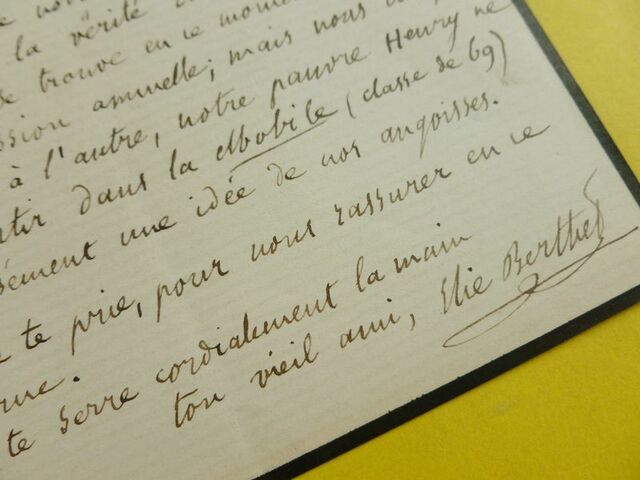 la vérité
se trouve en ce mome
ssion annuelle; mais nous
à l'autre, notre pauvre Henry ne
rtir dans la Mobile (classe de 69)
sément une idée de nos angoisses.
te prie, pour nous rassurer en ce
rme.
te serre cordialement la main
ton vieil ami, Elie Berthet